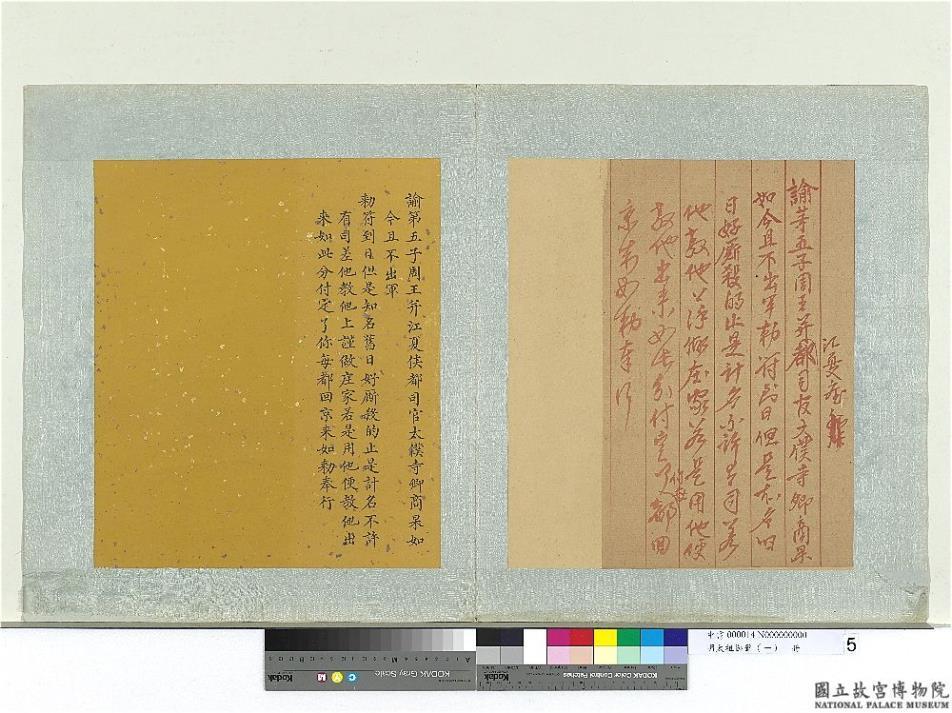 江夏侯
諭第五子周王并都司官太僕寺卿商暠
如今且不出軍勅符到日但是知名旧
日好廝殺的止是計名不許有司差
他教他上謹做庄家若是用他便
教他出来如此分付定了你每都回
京来如勅奉行
諭第五子周王并江夏侯都司官太僕寺卿商暠如
今且不出軍
勅符到日但是知名舊日好廝殺的止是計名不許
有司差他教他上謹做庄家若是用他便教他出
来如此分付定了你每都回京来如勅奉行
KODAK Gray Scale
Kodak
A
M
B
C
Y
M
Kodak
KODAK Color Control Patches
000014 N000000000
明太祖御筆（一） 冊
5
國立故宮博物院
NATIONAL PALACE MUSEUM